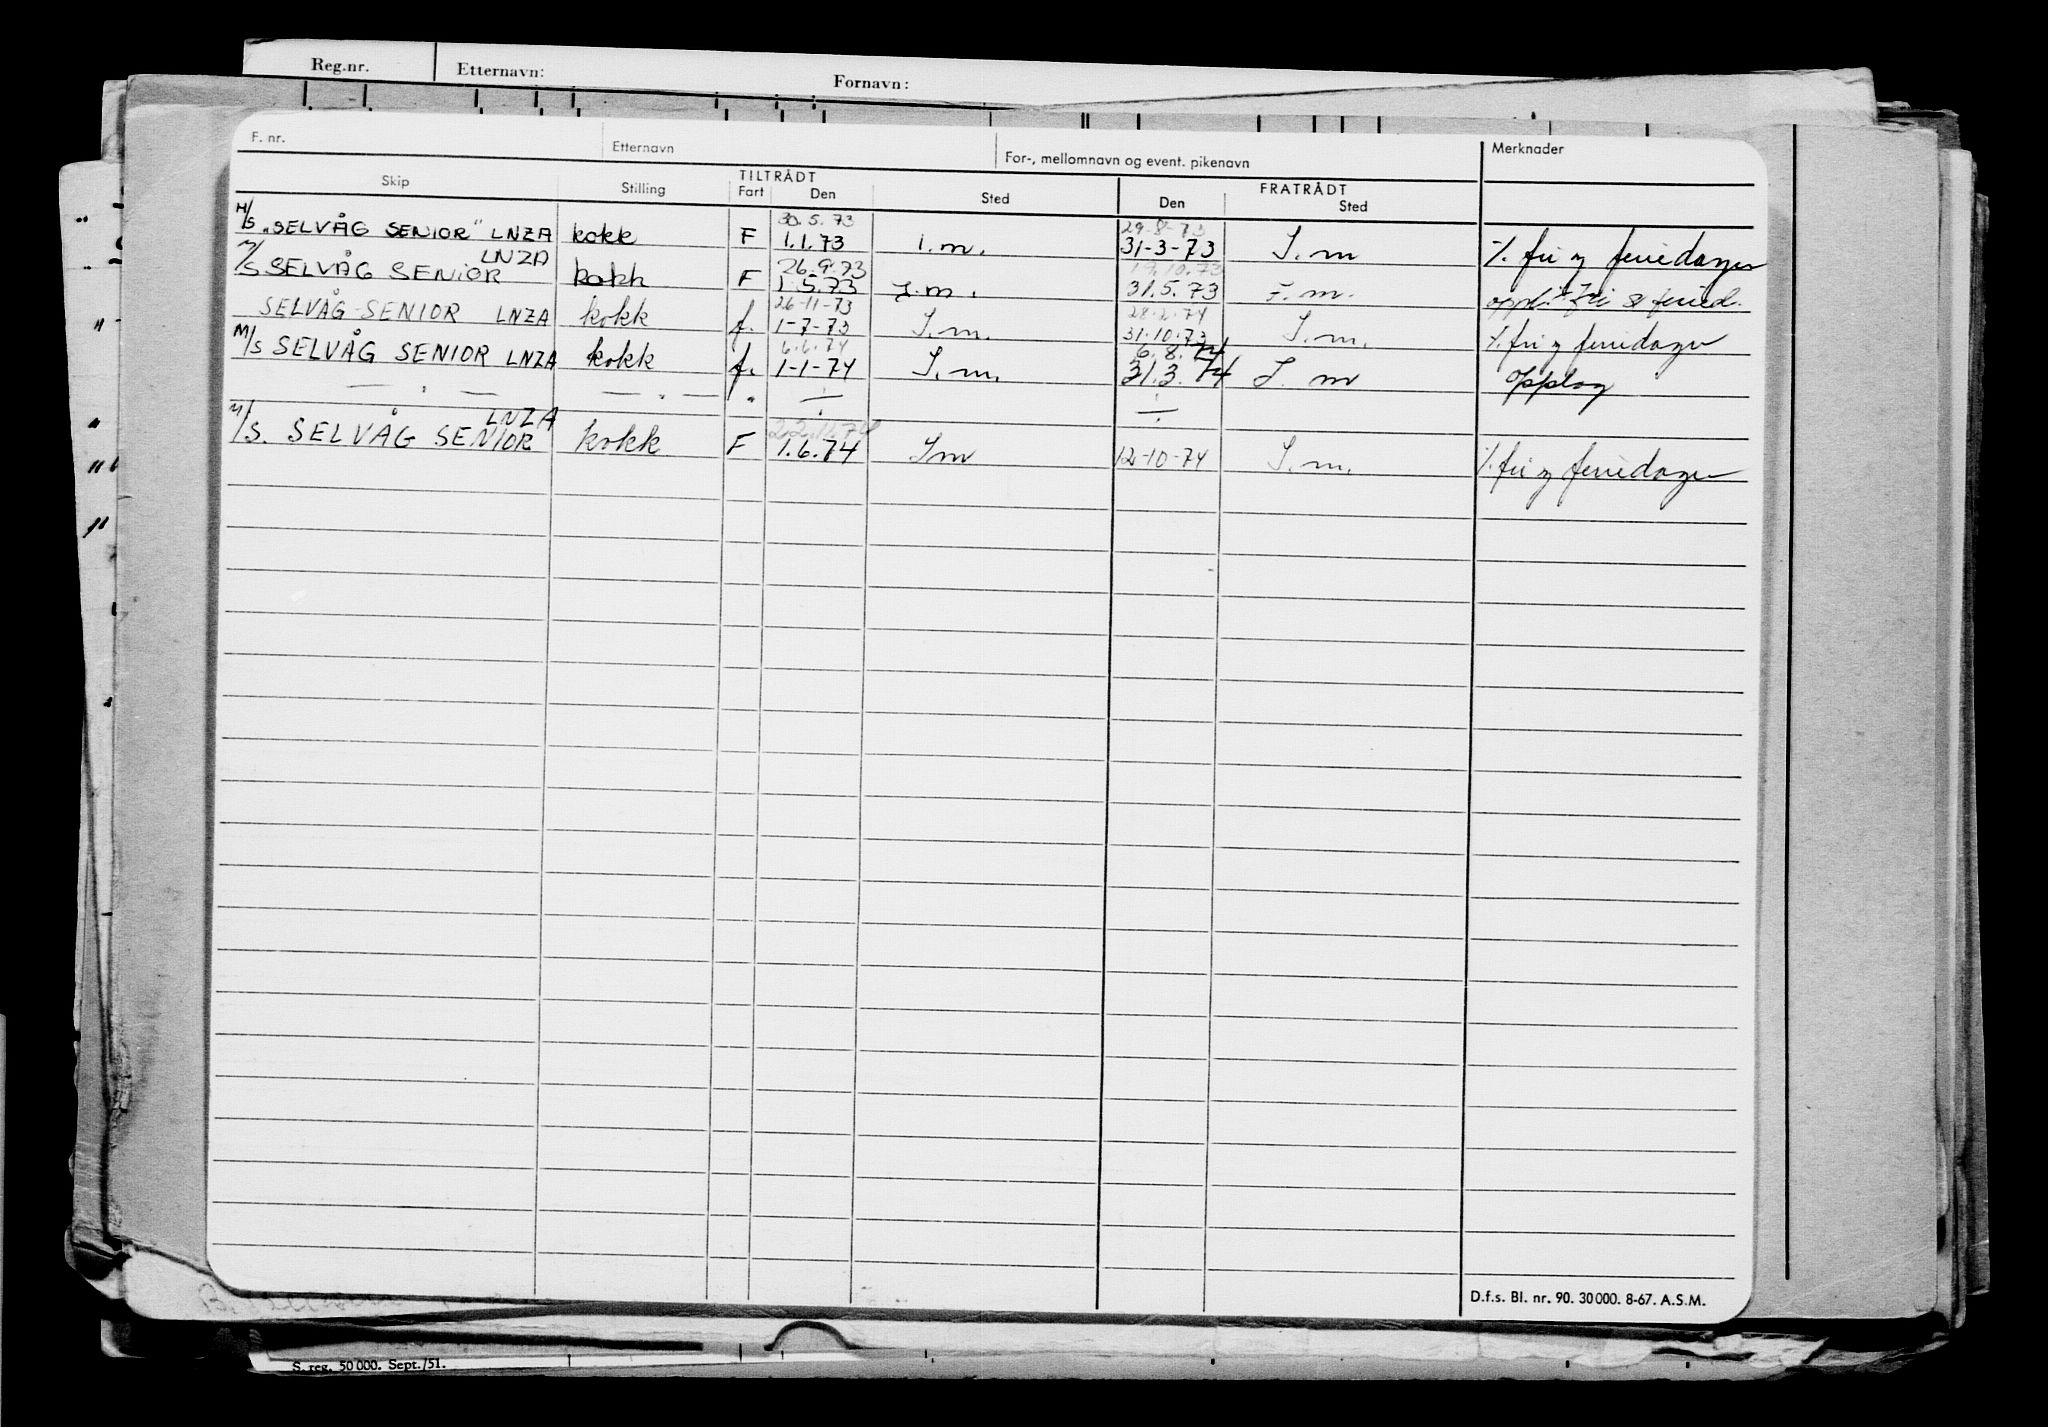 Reg.nr. Etternavn: Fornavn:
F. nr. Etternavn For-, mellomnavn og event. pikenavn Merknader
TILTRÅDT FRATRÅDT
Skip Stilling Fart Den Sted Den Sted
30.5.73 29-8-73
M/S "SELVÅG SENIOR" LNZA kokk F 1.1.73 i.m. 31-3-73 I.m ⁒ fri og feriedager
LNZA 26.9.73 19.10.73
M/S SELVÅG SENIOR kokk F 1.5.73 I.m. 31.5.73 I.m. oppl. ⁒ fri & feried.
26-11-73 28.2.74
SELVÅG-SENIOR LNZA kokk f. 1-7-73 I.m. 31.10.73 I.m. ⁒ fri og feriedager
6.6.74 6.8.74
M/S SELVÅG SENIOR LNZA kokk f. 1-1-74 I.m. 31.3.74 I.m opplag
— " — — " — " ÷ ÷
LNZA
M/S. SELVÅG SENIOR kokk F 1.6.74 Im 12-10-74 I.m. ⁒ fri og feriedager
D.f.s. Bl. nr. 90. 30000. 8-67. A.S.M.
S. reg. 50 000. Sept./51.